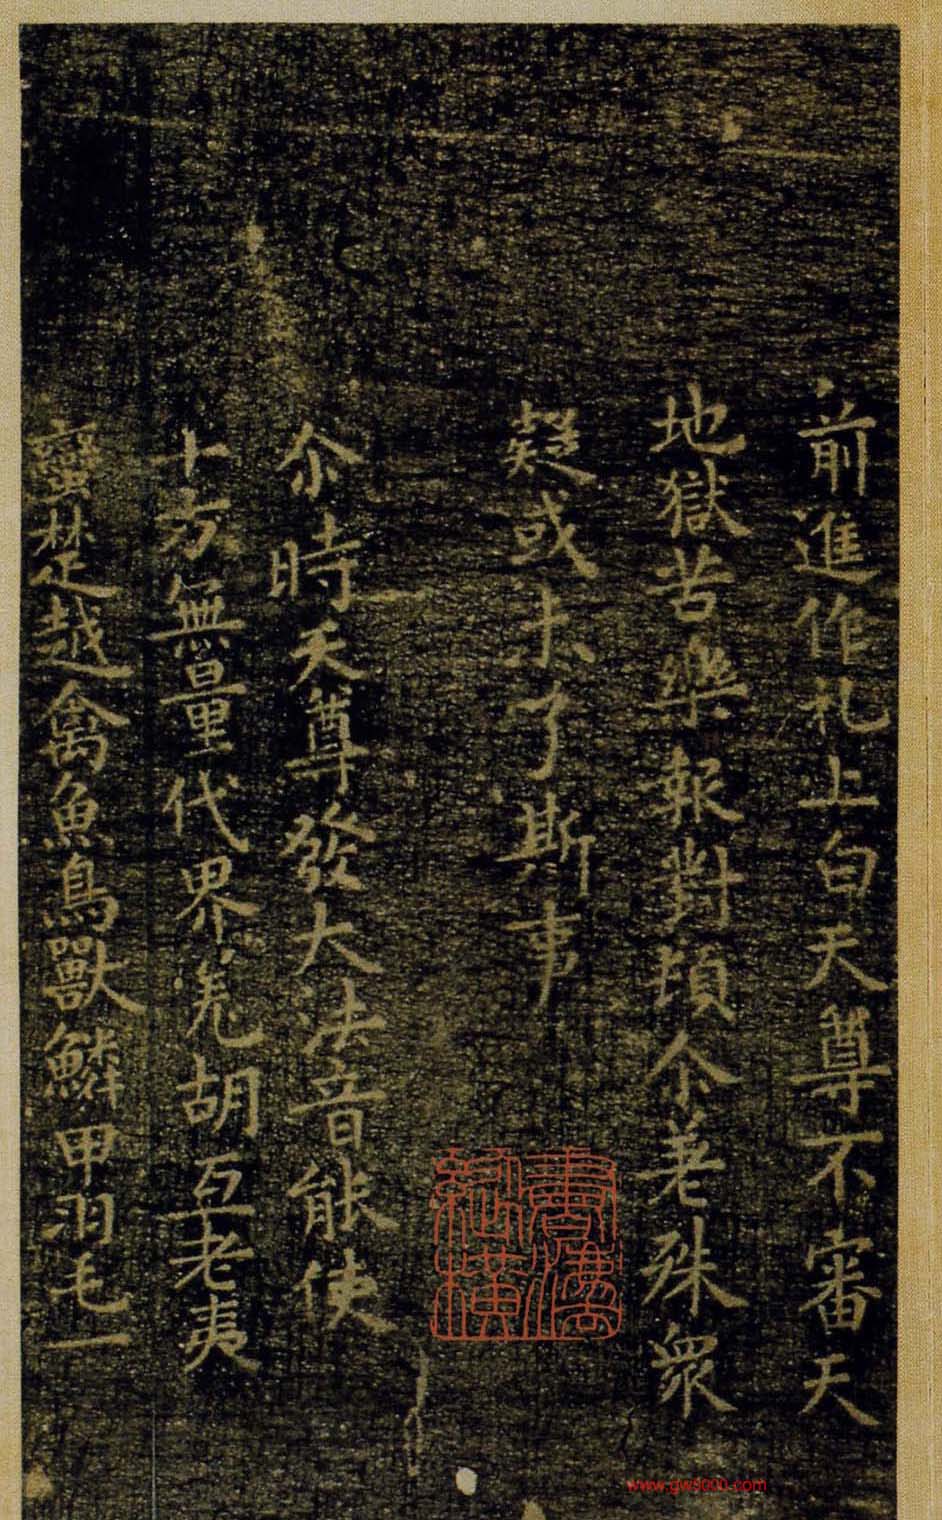 前進作礼上白天尊不審天
地獄苦樂報對頃尒差殊衆
疑或未了斯事
尒時天尊發大法音能使
十方無量代界羌胡百老夷
蠻楚越禽魚鳥獸鱗甲羽毛一
書法縱橫
www.gw9000.com